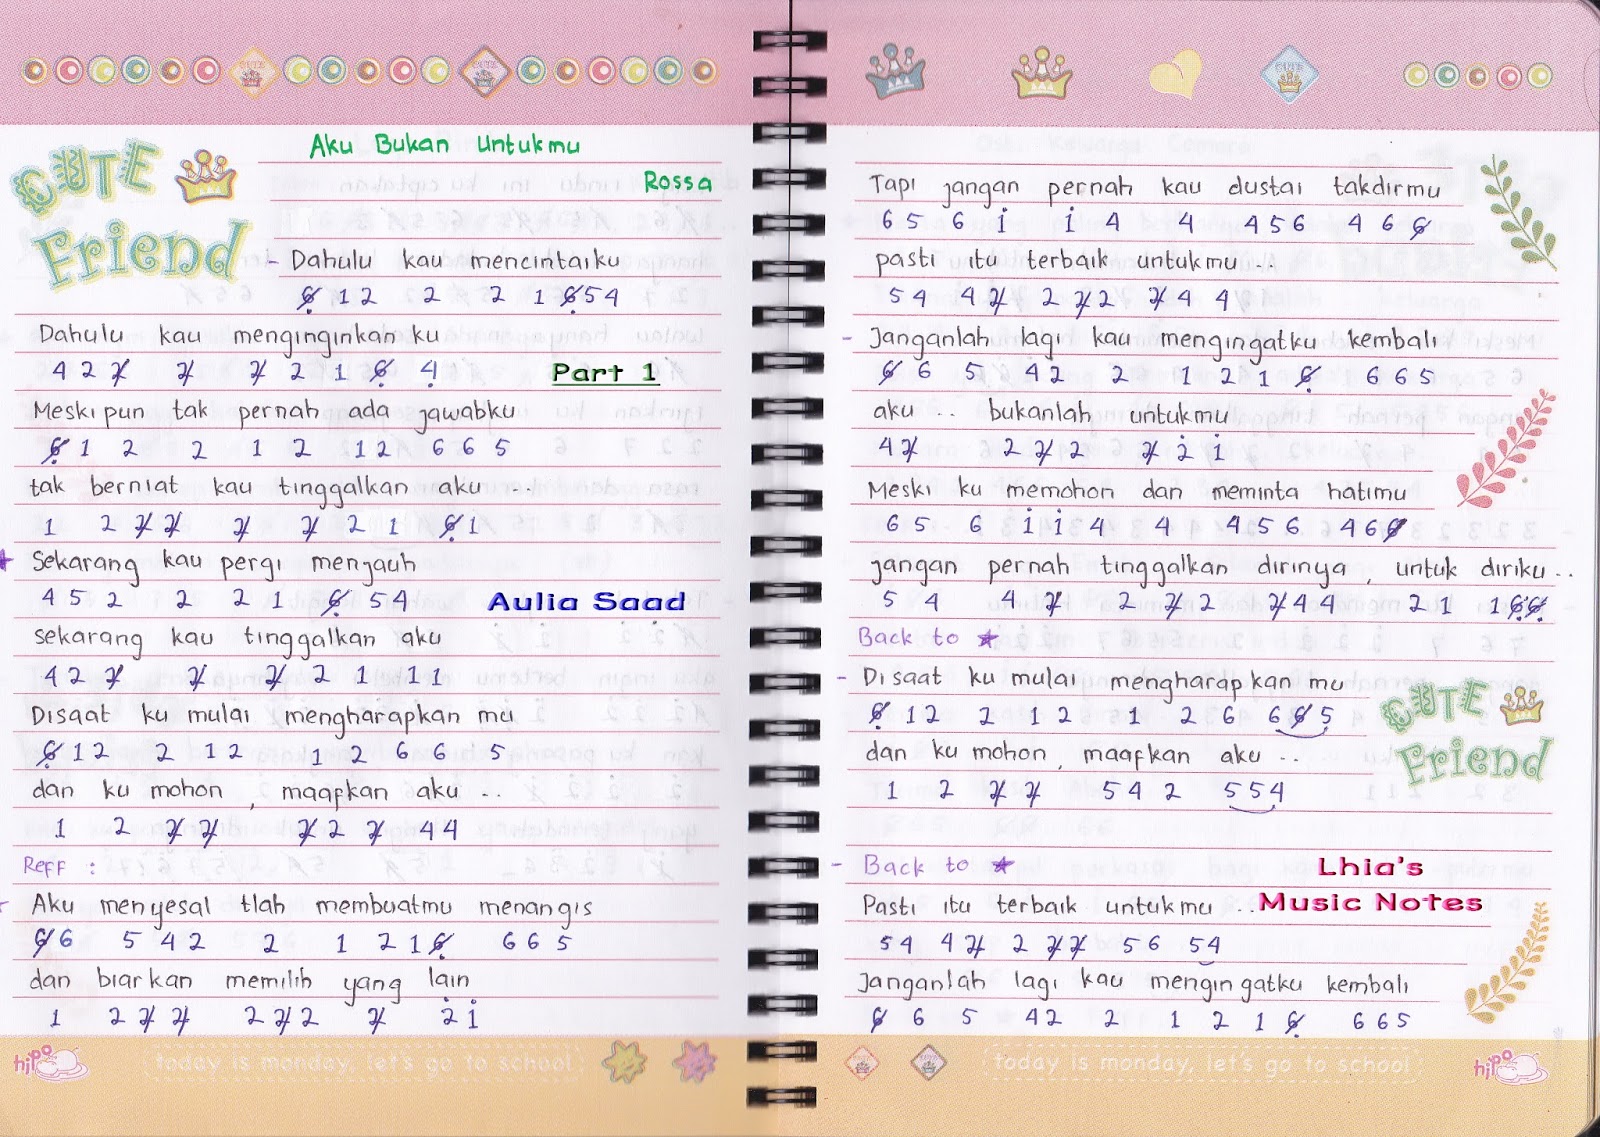 CUTE
Friend
Aku Bukan Untukmu
Rossa
- Dahulu kau mencintaiku
6 1 2 2 2 1 6 5 4
Dahulu kau menginginkan ku
4 2 2 2 2 2 1 6 4
Part 1
Meskipun tak pernah ada jawabku
6 1 2 2 1 2 1 2 6 6 5
tak berniat kau tinggalkan aku ...
1 2 2 2 2 2 2 1 6 1
Sekarang kau pergi menjauh
4 5 2 2 2 1 6 5 4
Aulia Saad
sekarang kau tinggalkan aku
4 2 2 2 2 2 1 1 1
Disaat ku mulai mengharapkan mu
6 1 2 2 1 2 1 2 6 6 5
dan ku mohon, maafkan aku ..
1 2 2 2 2 2 2 4 4
Reff :
- Aku menyesal tlah membuatmu menangis
6 6 5 4 2 2 1 2 1 6 6 6 5
dan biarkan memilih yang lain
1 2 2 2 2 2 2 2 2 1
hipo
today is monday, let's go to school
Tapi jangan pernah kau dustai takdirmu
6 5 6 1 1 4 4 4 5 6 4 6 6
pasti itu terbaik untukmu ...
5 4 4 2 2 2 2 2 4 4
- Janganlah lagi kau mengingatku kembali
6 6 5 4 2 2 1 2 1 6 6 6 5
aku .. bukanlah untukmu
4 2 2 2 2 2 2 1
Meski ku memohon dan meminta hatimu
6 5 6 1 1 4 4 4 5 6 4 6 6
jangan pernah tinggalkan dirinya, untuk diriku ..
5 4 4 2 2 2 2 2 4 4 2 1 1 6 6
Back to ★
- Disaat ku mulai mengharapkan mu
6 1 2 2 1 2 1 2 6 6 6 5
CUTE
Friend
dan ku mohon, maafkan aku ..
1 2 2 2 5 4 2 5 5 4
- Back to ★
Lhia's
Music Notes
Pasti itu terbaik untukmu ..
5 4 4 2 2 2 2 5 6 5 4
Janganlah lagi kau mengingatku kembali
6 6 5 4 2 2 1 2 1 6 6 6 5
today is monday, let's go to school
hipo